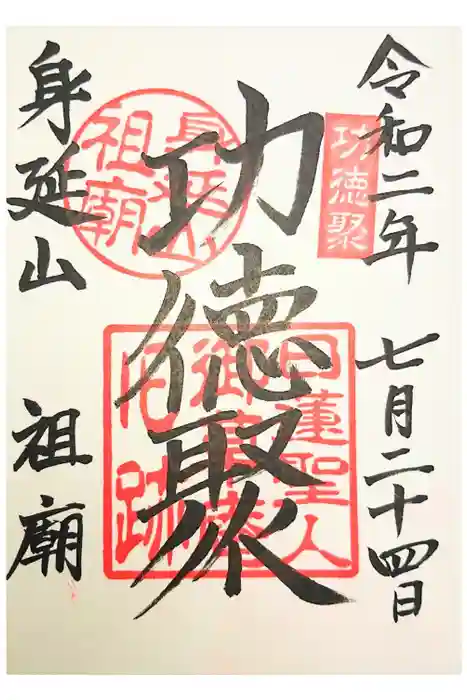 令和二年 七月二十四日
功徳聚
功徳聚
身延山 祖廟
身延山
祖廟
日蓮聖人
御草庵
旧跡